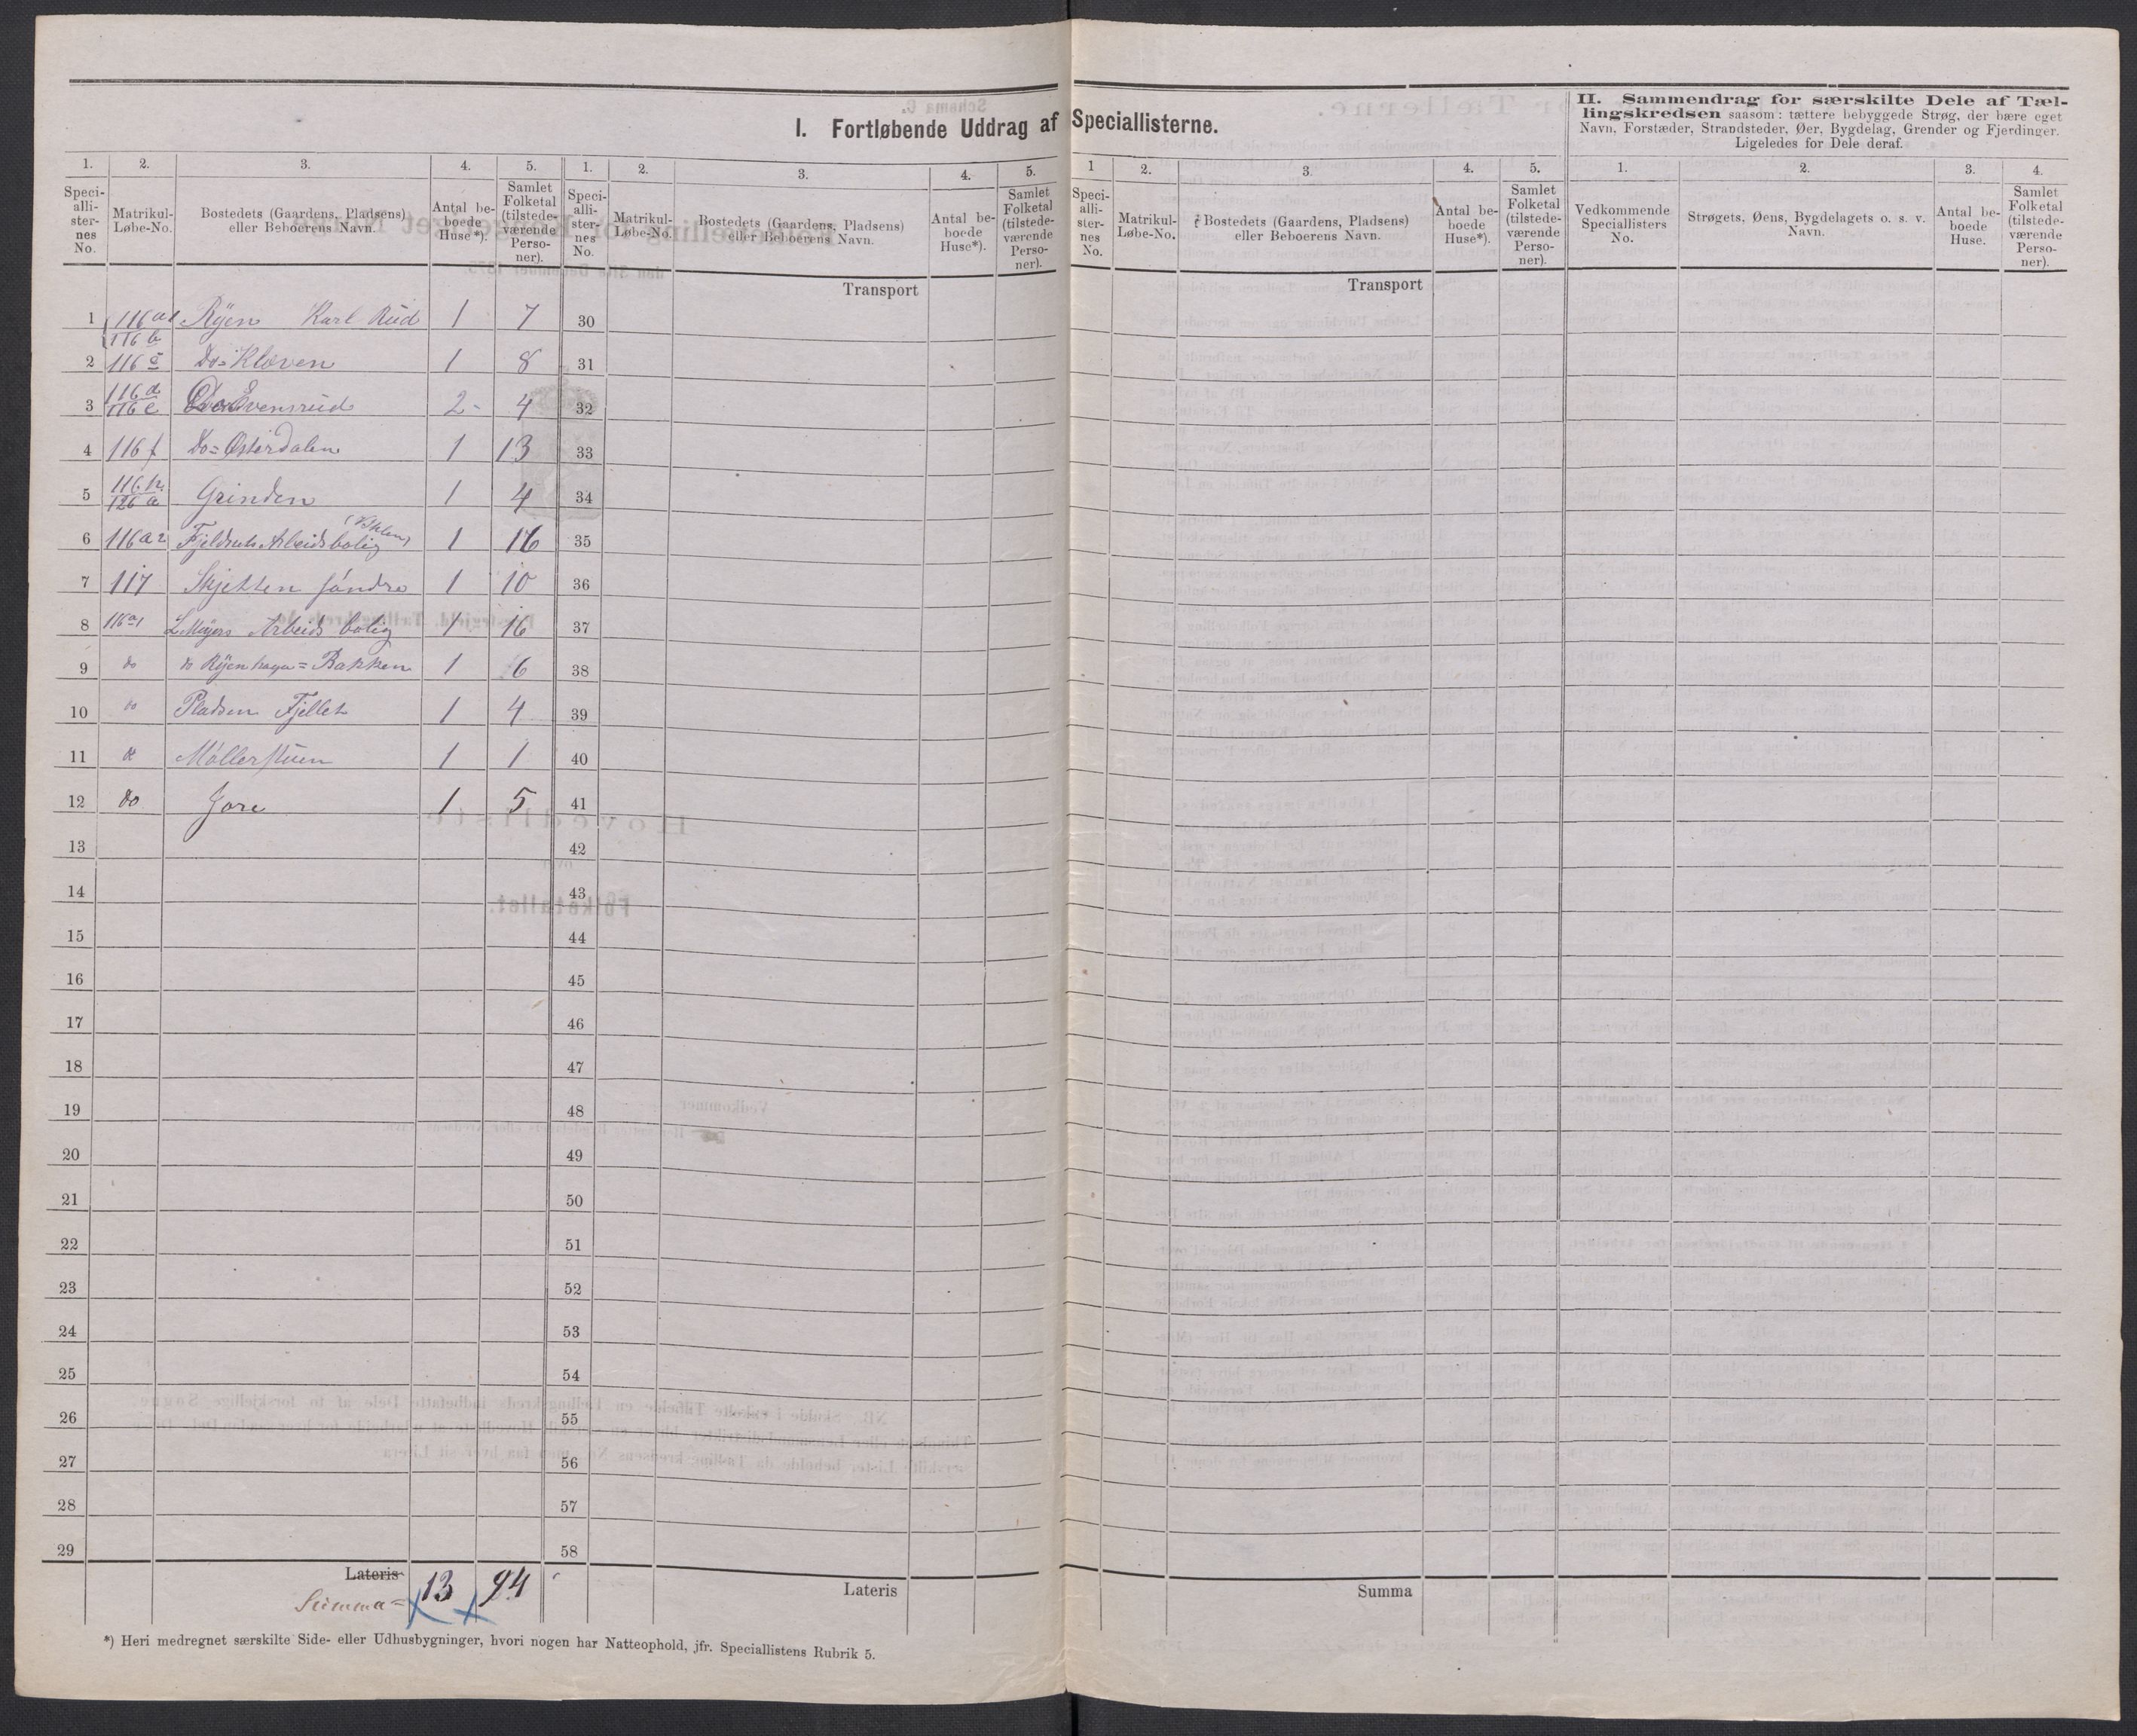 I. Fortløbende Uddrag af Speciallisterne.
II. Sammendrag for særskilte Dele af Tæl-
lingskredsen saasom: tættere bebyggede Strøg, der bære eget
Navn, Forstæder, Strandsteder, Øer, Bygdelag, Grender og Fjerdinger.
Ligeledes for Dele deraf.
1. 2. 3. 4. 5. 1. 2. 3. 4. 5. 1 2. 3. 4. 5. 1. 2. 3. 4.
Speci-
alli-
ster-
nes
No.
Matrikul-
Løbe-No.
Bostedets (Gaardens, Pladsens)
eller Beboerens Navn.
Antal be-
boede
Huse*).
Samlet
Folketal
(tilstede-
værende
Perso-
ner).
Speci-
alli-
ster-
nes
No.
Matrikul-
Løbe-No.
Bostedets (Gaardens, Pladsens)
eller Beboerens Navn.
Antal be-
boede
Huse*).
Samlet
Folketal
(tilstede-
værende
Perso-
ner).
Speci-
alli-
ster-
nes
No.
Matrikul-
Løbe-No.
Bostedets (Gaardens, Pladsens)
eller Beboerens Navn.
Antal be-
boede
Huse*).
Samlet
Folketal
(tilstede-
værende
Perso-
ner).
Vedkommende
Speciallisters
No.
Strøgets, Øens, Bygdelagets o. s. v.
Navn.
Antal be-
boede
Huse.
Samlet
Folketal
(tilstede-
værende
Perso-
ner).
Transport
Transport
1 116a1 Ryen Karl Rud 1 7 30
116b
2 116c Do= Kloven 1 8 31
3 116d 116e Evensrud 2 4 32
4 116f Do= Østerdalen 1 13 33
5 116h 126a Grinden 1 4 34
6 116a2 Arbeidsbolig 1 16 35
7 117 Skjetten søndre 1 10 36
8 116a1 Arbeids bolig 1 16 37
9 do do Ryenhagen= Bakken 1 6 38
10 do Pladsen Fjellet 1 4 39
11 do Møllerstuen 1 1 40
12 do Jore 1 5 41
13 42
14 43
15 44
16 45
17 46
18 47
19 48
20 49
21 50
22 51
23 52
24 53
25 54
26 55
27 56
28 57
29 58
Lateris 13 94
Summa=
Lateris
Summa
*) Heri medregnet særskilte Side- eller Udhusbygninger, hvori nogen har Natteophold, jfr. Speciallistens Rubrik 5.